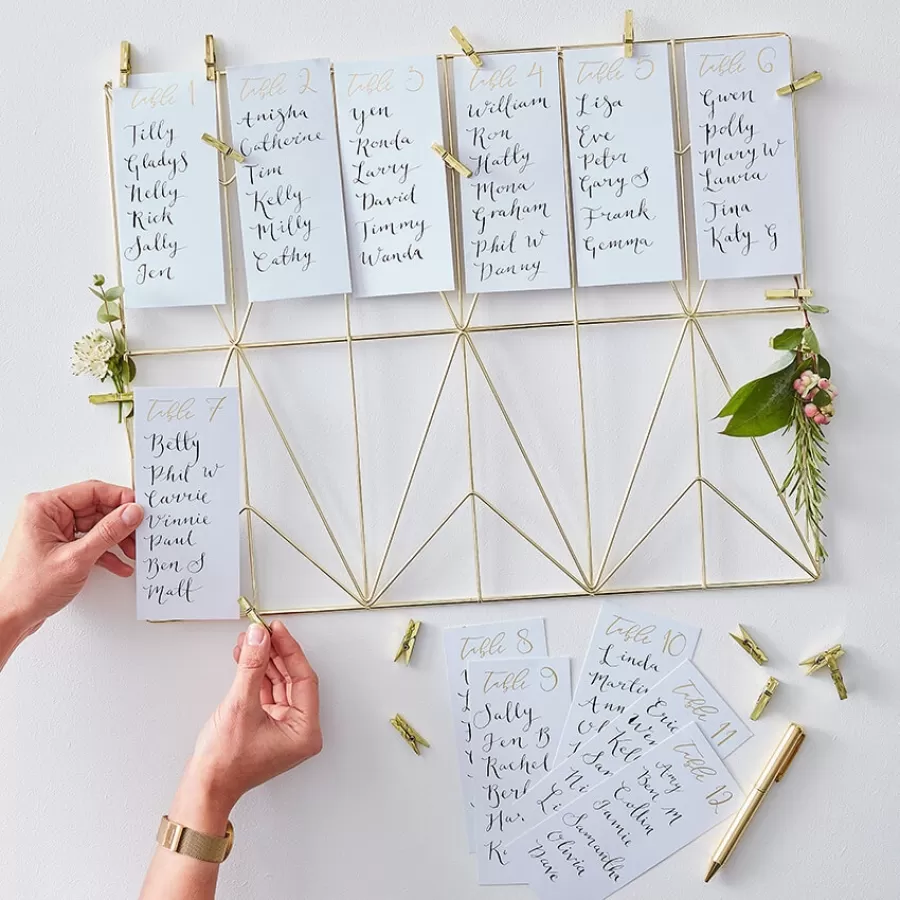 Table 1
Tilly
Gladys
Nelly
Rick
Sally
Jen
Table 2
Anisha
Catherine
Tim
Kelly
Milly
Cathy
Table 3
Yen
Ronda
Larry
David
Timmy
Wanda
Table 4
William
Ron
Hatty
Mona
Graham
Phil W
Danny
Table 5
Lisa
Eve
Peter
Gary S
Frank
Gemma
Table 6
Gwen
Polly
Mary W
Laura
Tina
Katy G
Table 7
Betty
Phil W
Carrie
Vinnie
Paul
Ben S
Matt
Table 8
Table 9
Sally
Jen B
Rachel
Table 10
Linda
Table 11
Table 12
Amy
Ben M
Collin
Jamie
Samantha
Olivia
Dave